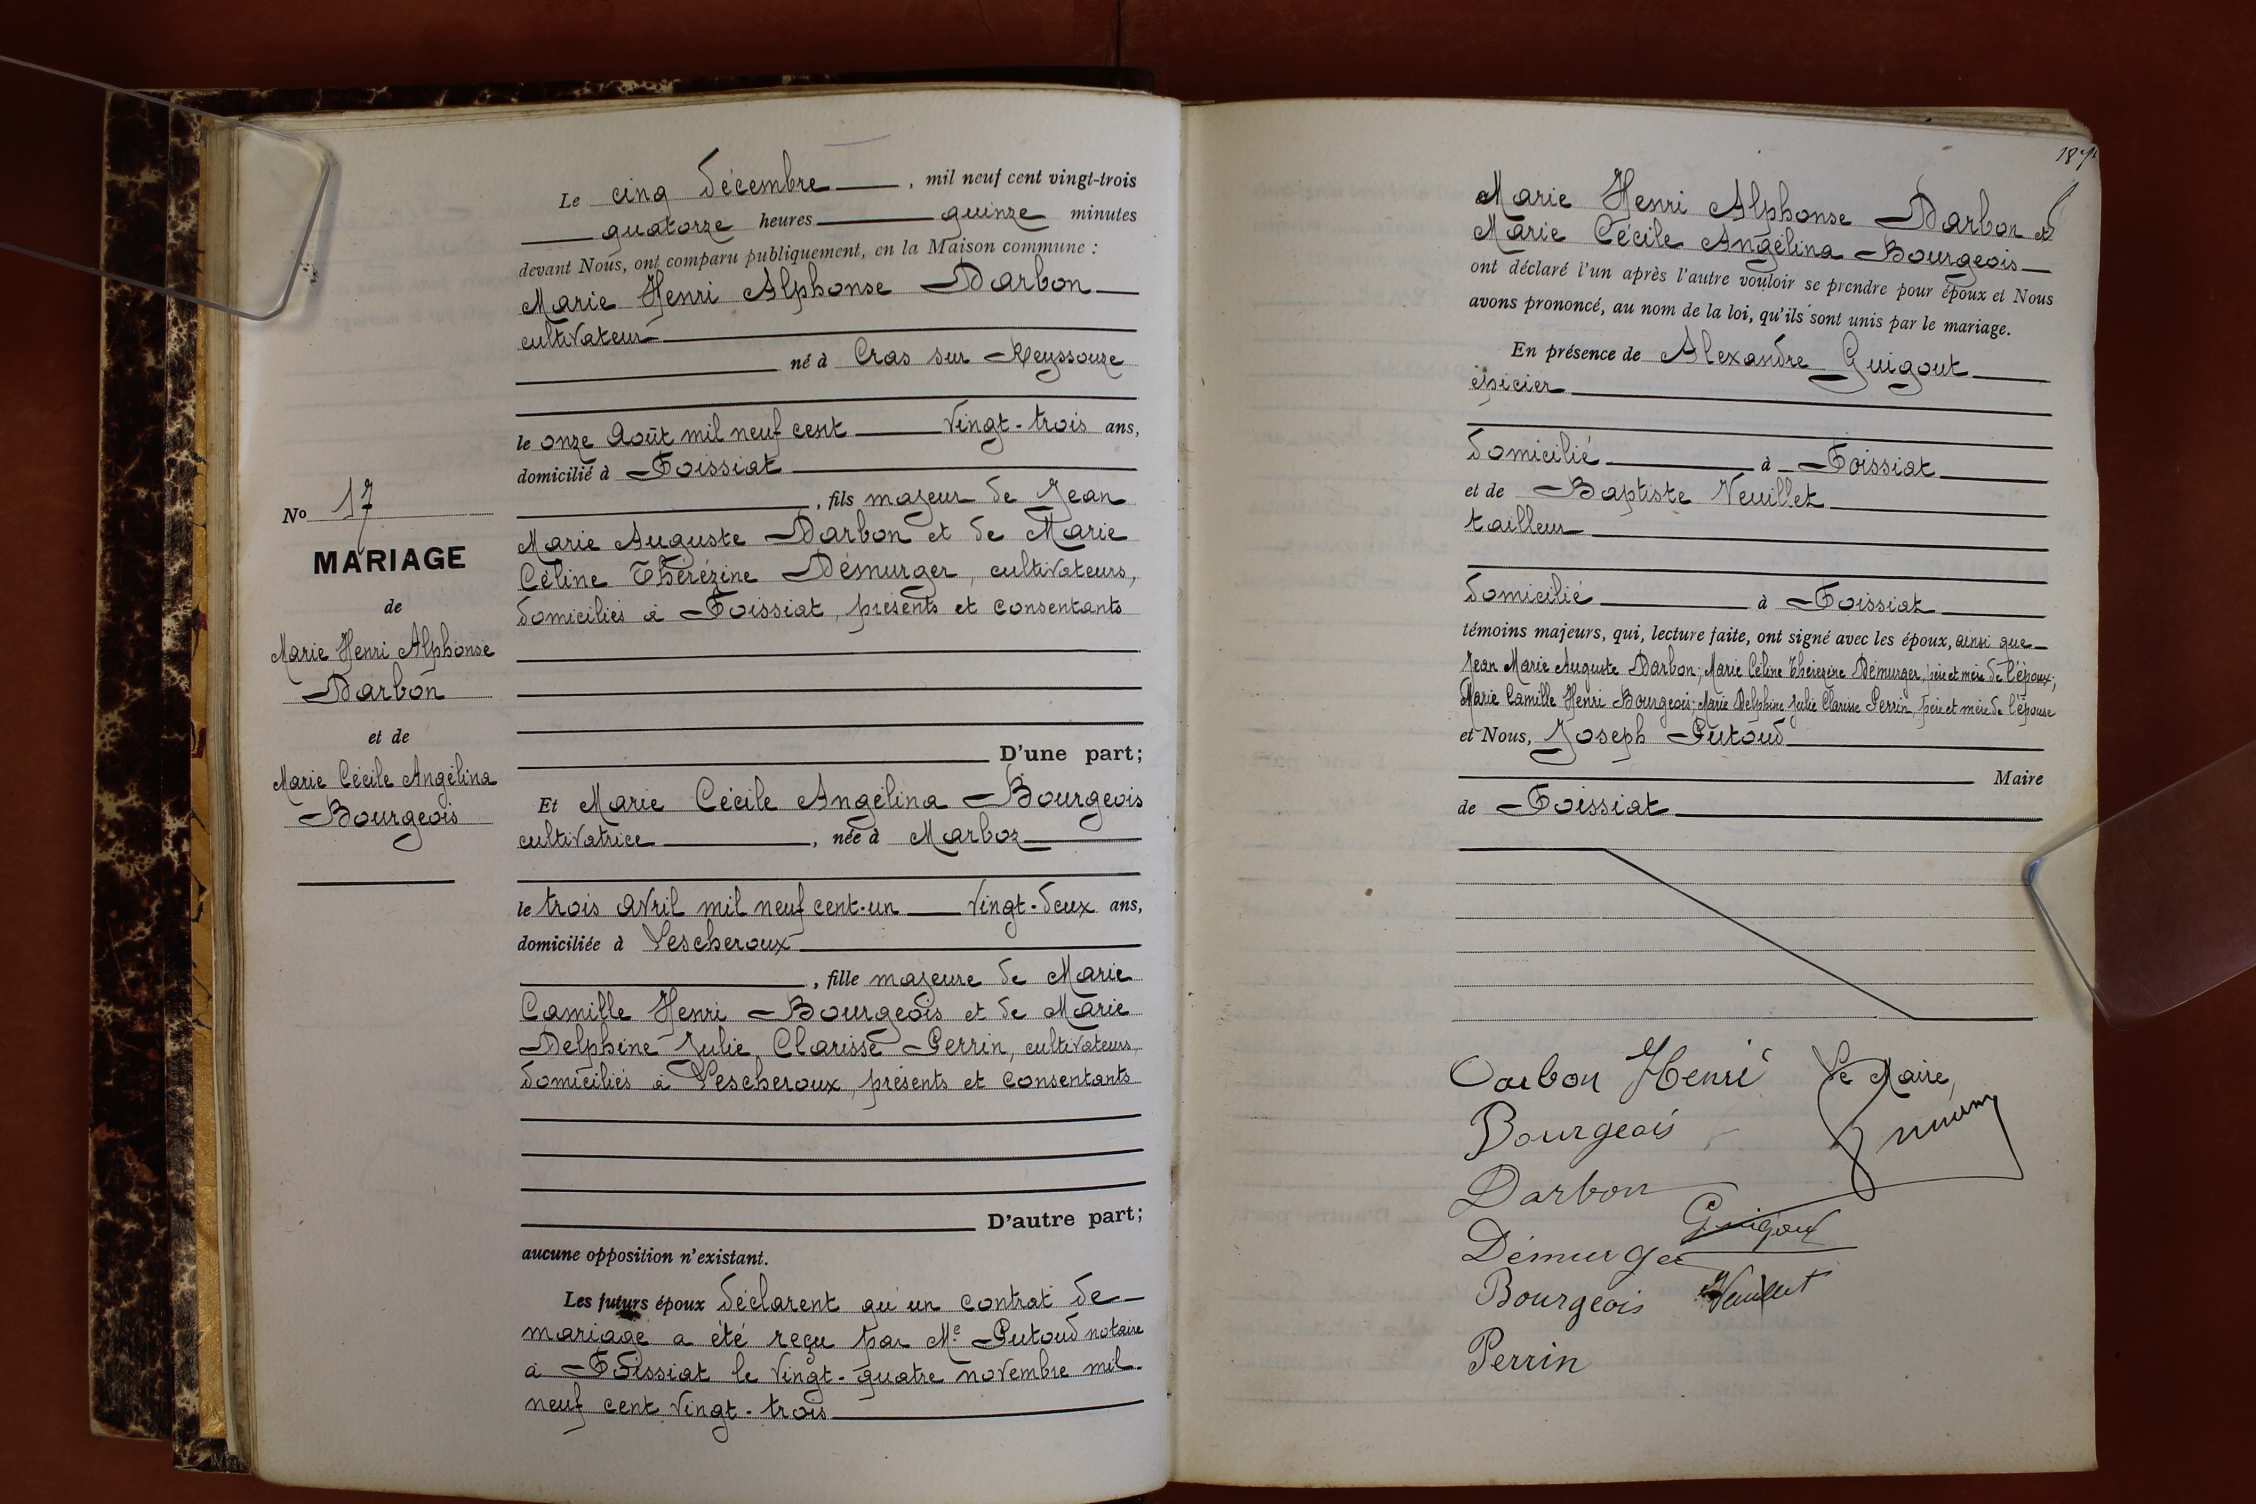 No 17
MARIAGE
de
Marie Henri Alphonse
Darbon
et de
Marie Cécile Angélina
Bourgeois
Le cinq décembre, mil neuf cent vingt-trois
quatorze heures quinze minutes
devant Nous, ont comparu publiquement, en la Maison commune :
Marie Henri Alphonse Darbon
cultivateur
né à Cras sur Reyssouze
le onze Août mil neuf cent vingt-trois ans,
domicilié à Foissiat
, fils majeur de Jean
Marie Auguste Darbon et de Marie
Céline Thérézine Démurger, cultivateurs,
domiciliés à Foissiat, présents et consentants
D'une part;
Et Marie Cécile Angélina Bourgeois
cultivatrice, née à Marboz
le trois avril mil neuf cent-un vingt-deux ans,
domiciliée à Lescheroux
, fille majeure de Marie
Camille Henri Bourgeois et de Marie
Delphine Julie Clarisse Perrin, cultivateurs,
domiciliés à Lescheroux, présents et consentants
D'autre part;
aucune opposition n'existant.
Les futurs époux déclarent qu'un contrat de
mariage a été reçu par Me Putoud notaire
à Foissiat le vingt-quatre novembre mil
neuf cent vingt-trois
Marie Henri Alphonse Darbon et
Marie Cécile Angélina Bourgeois
ont déclaré l'un après l'autre vouloir se prendre pour époux et Nous
avons prononcé, au nom de la loi, qu'ils sont unis par le mariage.
En présence de Alexandre Guigout
épicier
domicilié à Foissiat
et de Baptiste Veuillet
tailleur
domicilié à Foissiat
témoins majeurs, qui, lecture faite, ont signé avec les époux, ainsi que
Jean Marie Auguste Darbon; Marie Céline Thérézine Démurger, père et mère de l'époux;
Marie Camille Henri Bourgeois; Marie Delphine Julie Clarisse Perrin, père et mère de l'épouse
et Nous, Joseph Putoud
Maire
de Foissiat
Darbon Henri
Le Maire,
Bourgeois
Darbon
Guigout
Démurger
Bourgeois
Veuillet
Perrin